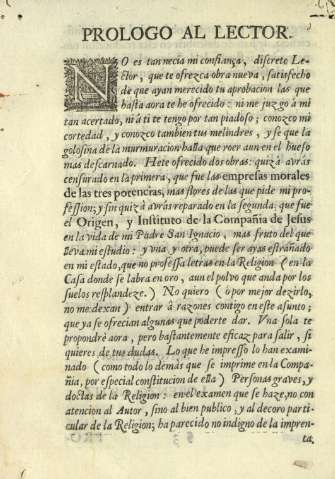 PROLOGO AL LECTOR.
NO es tan necia mi confiança, discreto Le-
ctor, que te ofrezca obra nueva, satisfecho
de que ayan merecido tu aprobacion las que
hasta aora te he ofrecido: ni me juzgo a mi
tan acertado, ni à ti te tengo por tan piadoso; conozco mi
cortedad, y conozco tambien tus melindres, y se que la
golosina de la murmuracion halla que roer aun en el hueso
mas descarnado. Hete ofrecido dos obras: quizà avràs
censurado en la primera, que fue las empresas morales
de las tres potencias, mas flores de las que pide mi pro-
fession; y sin quizà avràs reparado en la segunda; que fue
el Origen, y Instituto de la Compañia de Jesus
en la vida de mi Padre San Ignacio, mas fruto del que
lleva mi estudio: y vna, y otra, puede ser ayas estrañado
en mi estado, que no professa letras en la Religion (en la
Casa donde se labra en oro, aun el polvo que anda por los
suelos resplandeze.) No quiero (ò por mejor dezirlo,
no me dexan) entrar à razones contigo en este assunto;
que ya se ofrecian algunas que poderte dar. Vna sola te
propondrè aora, pero bastantemente eficaz para salir, si
quieres de tus dudas. Lo que he impresso lo han exami-
nado (como todo lo demàs que se imprime en la Compa-
ñia, por especial constitucion de ella) Personas graves, y
doctas de la Religion: en el examen que se haze, no con
atencion al Autor, sino al bien publico, y al decoro parti-
cular de la Religion; ha parecido no indigno de la impren-
ta,